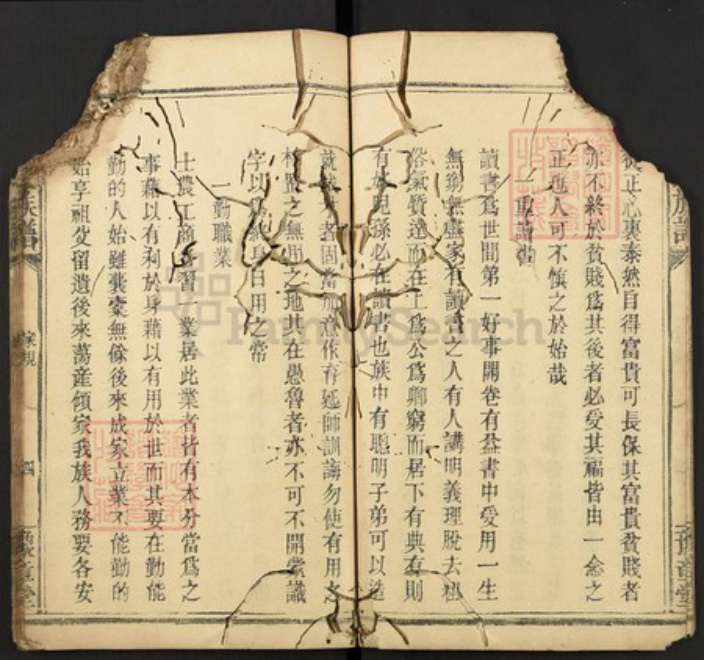 從正心裏泰然自得富貴可長保其富貴貧賤者
亦不終於貧賤爲其後者必受其福皆由一念之
正也人可不慎之於始哉
一重讀書
讀書爲世間第一好事開卷有益書中受用一生
無窮無盡家有讀書之人有人講明義理脫去粗
俗氣質達而在上爲公爲卿窮而居下有典有則
有好兒孫必在讀書也族中有聰明子弟可以造
就者固當加意作育延師訓誨勿使有用之
材置之無用之地其在愚魯者亦不可不開蒙識
字以爲終身日用之常
一勤職業
士農工商各習一業居此業者皆有本分當爲之
事藉以有利於身藉以有用於世而其要在勤能
勤的人始雖囊橐無餘後來成家立業不能勤的
始享祖父留遺後來蕩產傾家我族人務要各安
族譜
家規
四
FamilySearch